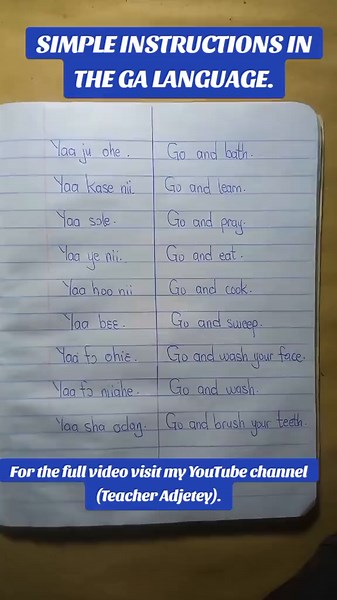 SIMPLE INSTRUCTIONS IN
THE GA LANGUAGE.
Yaa ju ohe. Go and bath.
Yaa kase nii. Go and learn.
Yaa sole. Go and pray.
Yaa ye nii. Go and eat.
Yaa hoo nii Go and cook.
Yaa bɛɛ. Go and sweep.
Yaa fɔ ohiɛ. Go and wash your face.
Yaa fɔ niiahe. Go and wash.
Yaa sha odaŋ. Go and brush your teeth.
For the full video visit my YouTube channel
(Teacher Adjetey).